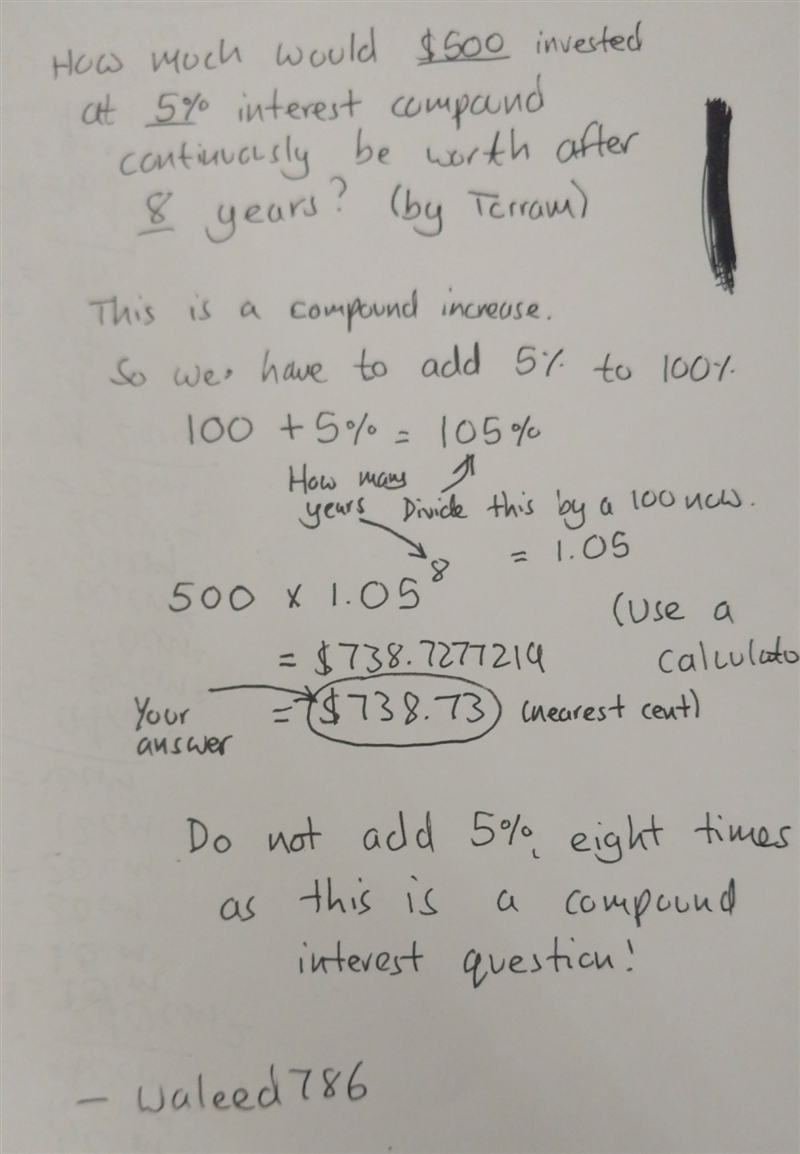 How much would $500 invested
at 5% interest compound
continuously be worth after
8 years? (by Terram)
This is a compound increase.
So we have to add 5% to 100%
100 + 5% = 105%
How many
years Divide this by a 100 now.
= 1.05
500 x 1.05⁸
(Use a
= $738.7277214 calculato
Your = $738.73 (nearest cent)
answer
Do not add 5%, eight times
as this is a compound
interest question!
- waleed786